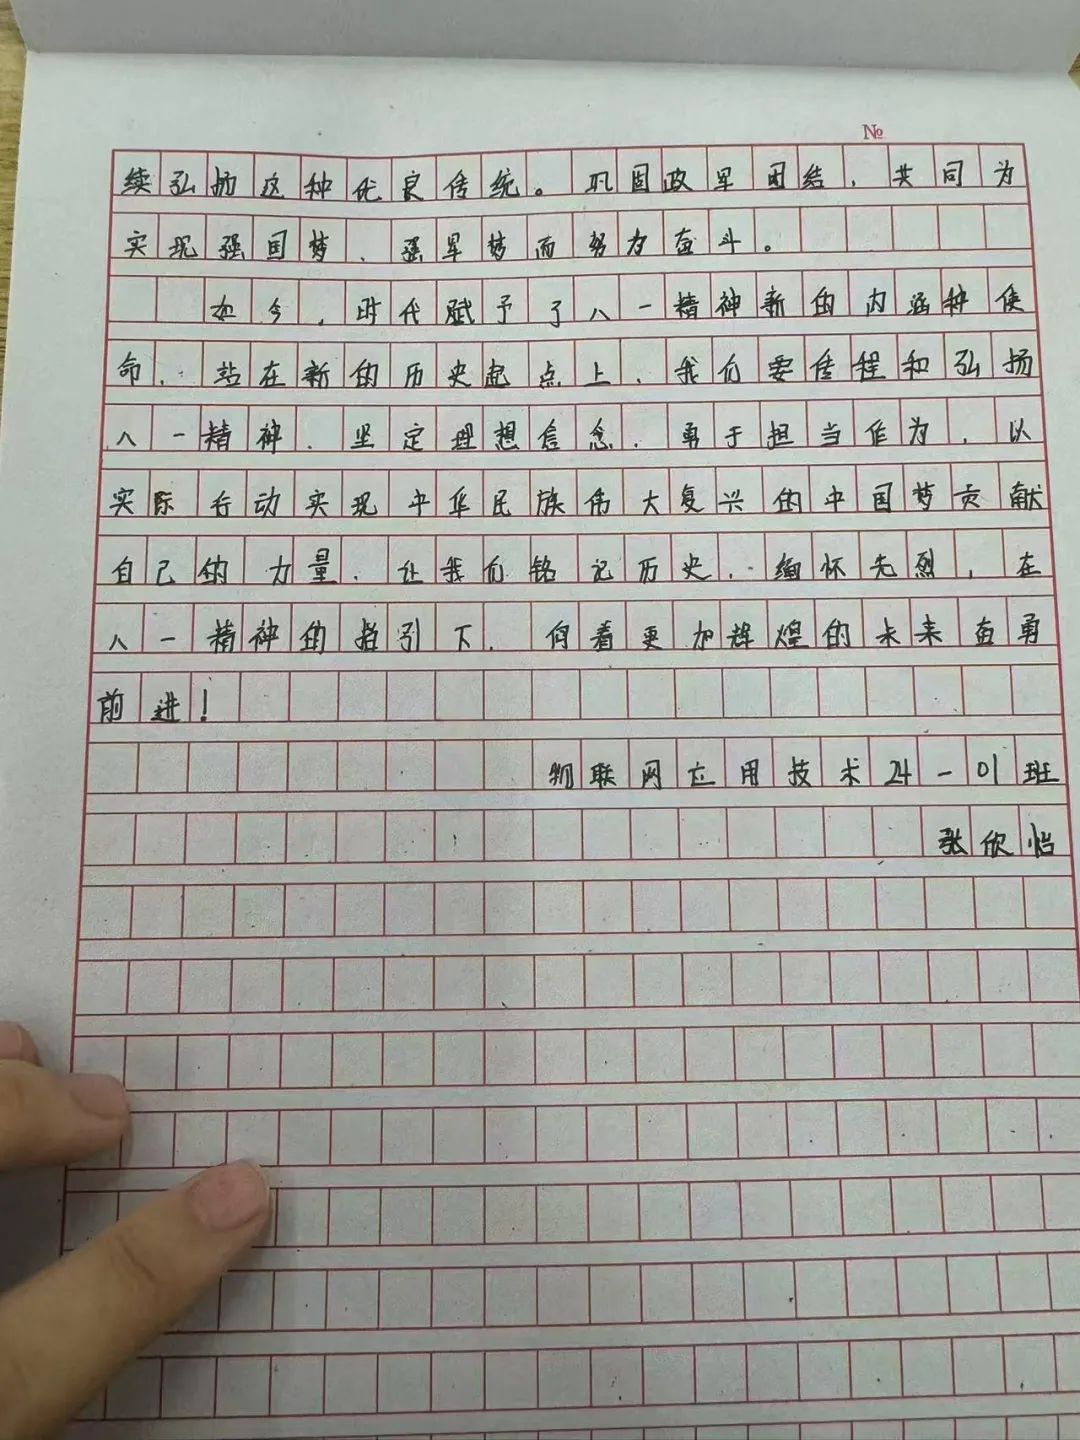 №
续弘扬这种优良传统。巩固政军团结，共同为
实现强国梦、强军梦而努力奋斗。
如今，时代赋予了八一精神新的内涵种使
命，站在新的历史起点上，我们要传程和弘扬
八一精神，坚定理想信念，勇于担当作为，以
实际行动实现中华民族伟大复兴的中国梦贡献
自己的力量，让我们铭记历史，缅怀先烈，在
八一精神的指引下，向着更加辉煌的未来奋勇
前进！
物联网应用技术24-01班
张欣怡